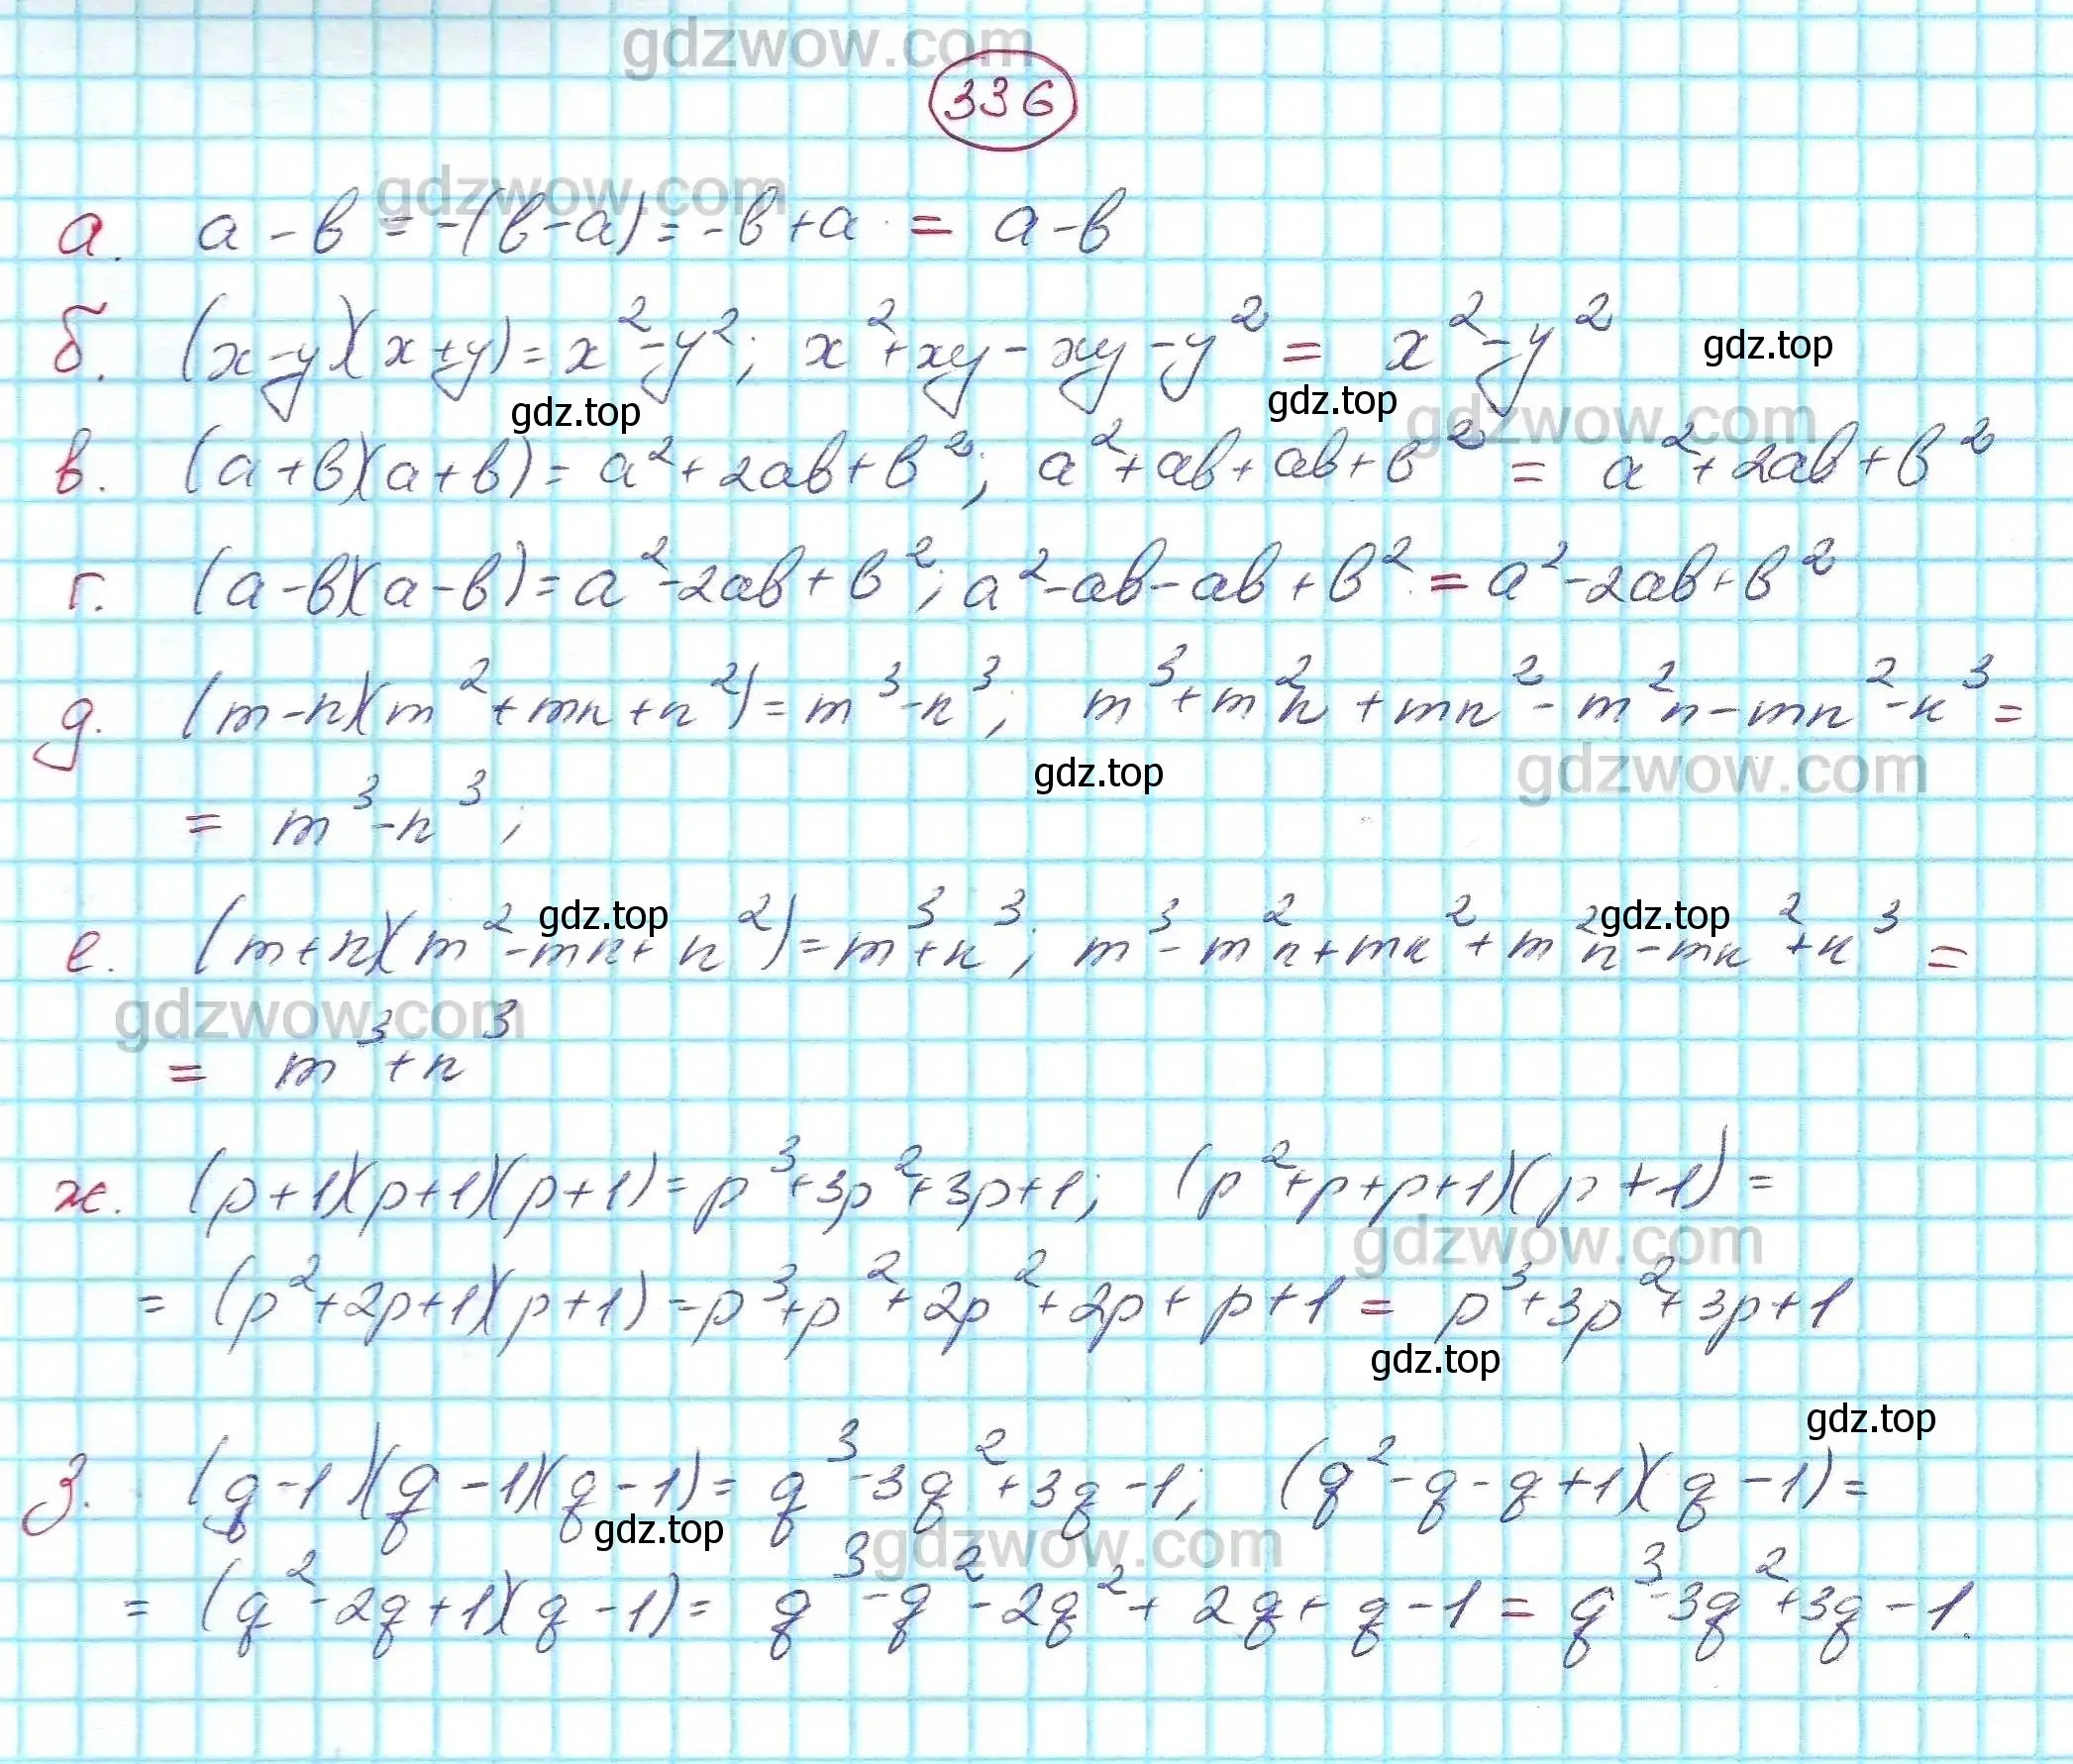 gdzwow.com
336
gdzwow.com
а. a - b = -(b-a) = -b + a = a - b
б. (x-y)(x+y) = x²-y²; x²+xy - xy - y² = x² - y²
gdz.top
gdz.top
gdz.top
gdzwow.com
в. (a+b)(a+b) = a²+2ab+b²; a²+ab+ab+b² = a²+2ab+b²
г. (a-b)(a-b) = a²-2ab+b²; a²-ab-ab+b² = a²-2ab+b²
д. (m-n)(m²+mn+n²) = m³-n³; m³+m²n+mn²-m²n-mn²-n³ =
gdz.top
gdzwow.com
= m³-n³;
gdz.top
gdz.top
е. (m+n)(m²-mn+n²) = m³+n³; m³-m²n+mn²+m²n-mn²+n³ =
gdzwow.com
= m³+n³
ж. (p+1)(p+1)(p+1) = p³+3p²+3p+1; (p²+p+p+1)(p+1) =
gdzwow.com
= (p²+2p+1)(p+1) = p³+p²+2p²+2p+p+1 = p³+3p²+3p+1
gdz.top
gdz.top
з. (q-1)(q-1)(q-1) = q³-3q²+3q-1; (q²-q-q+1)(q-1) =
gdz.top
gdzwow.com
= (q²-2q+1)(q-1) = q³-q²-2q²+2q+q-1 = q³-3q²+3q-1.